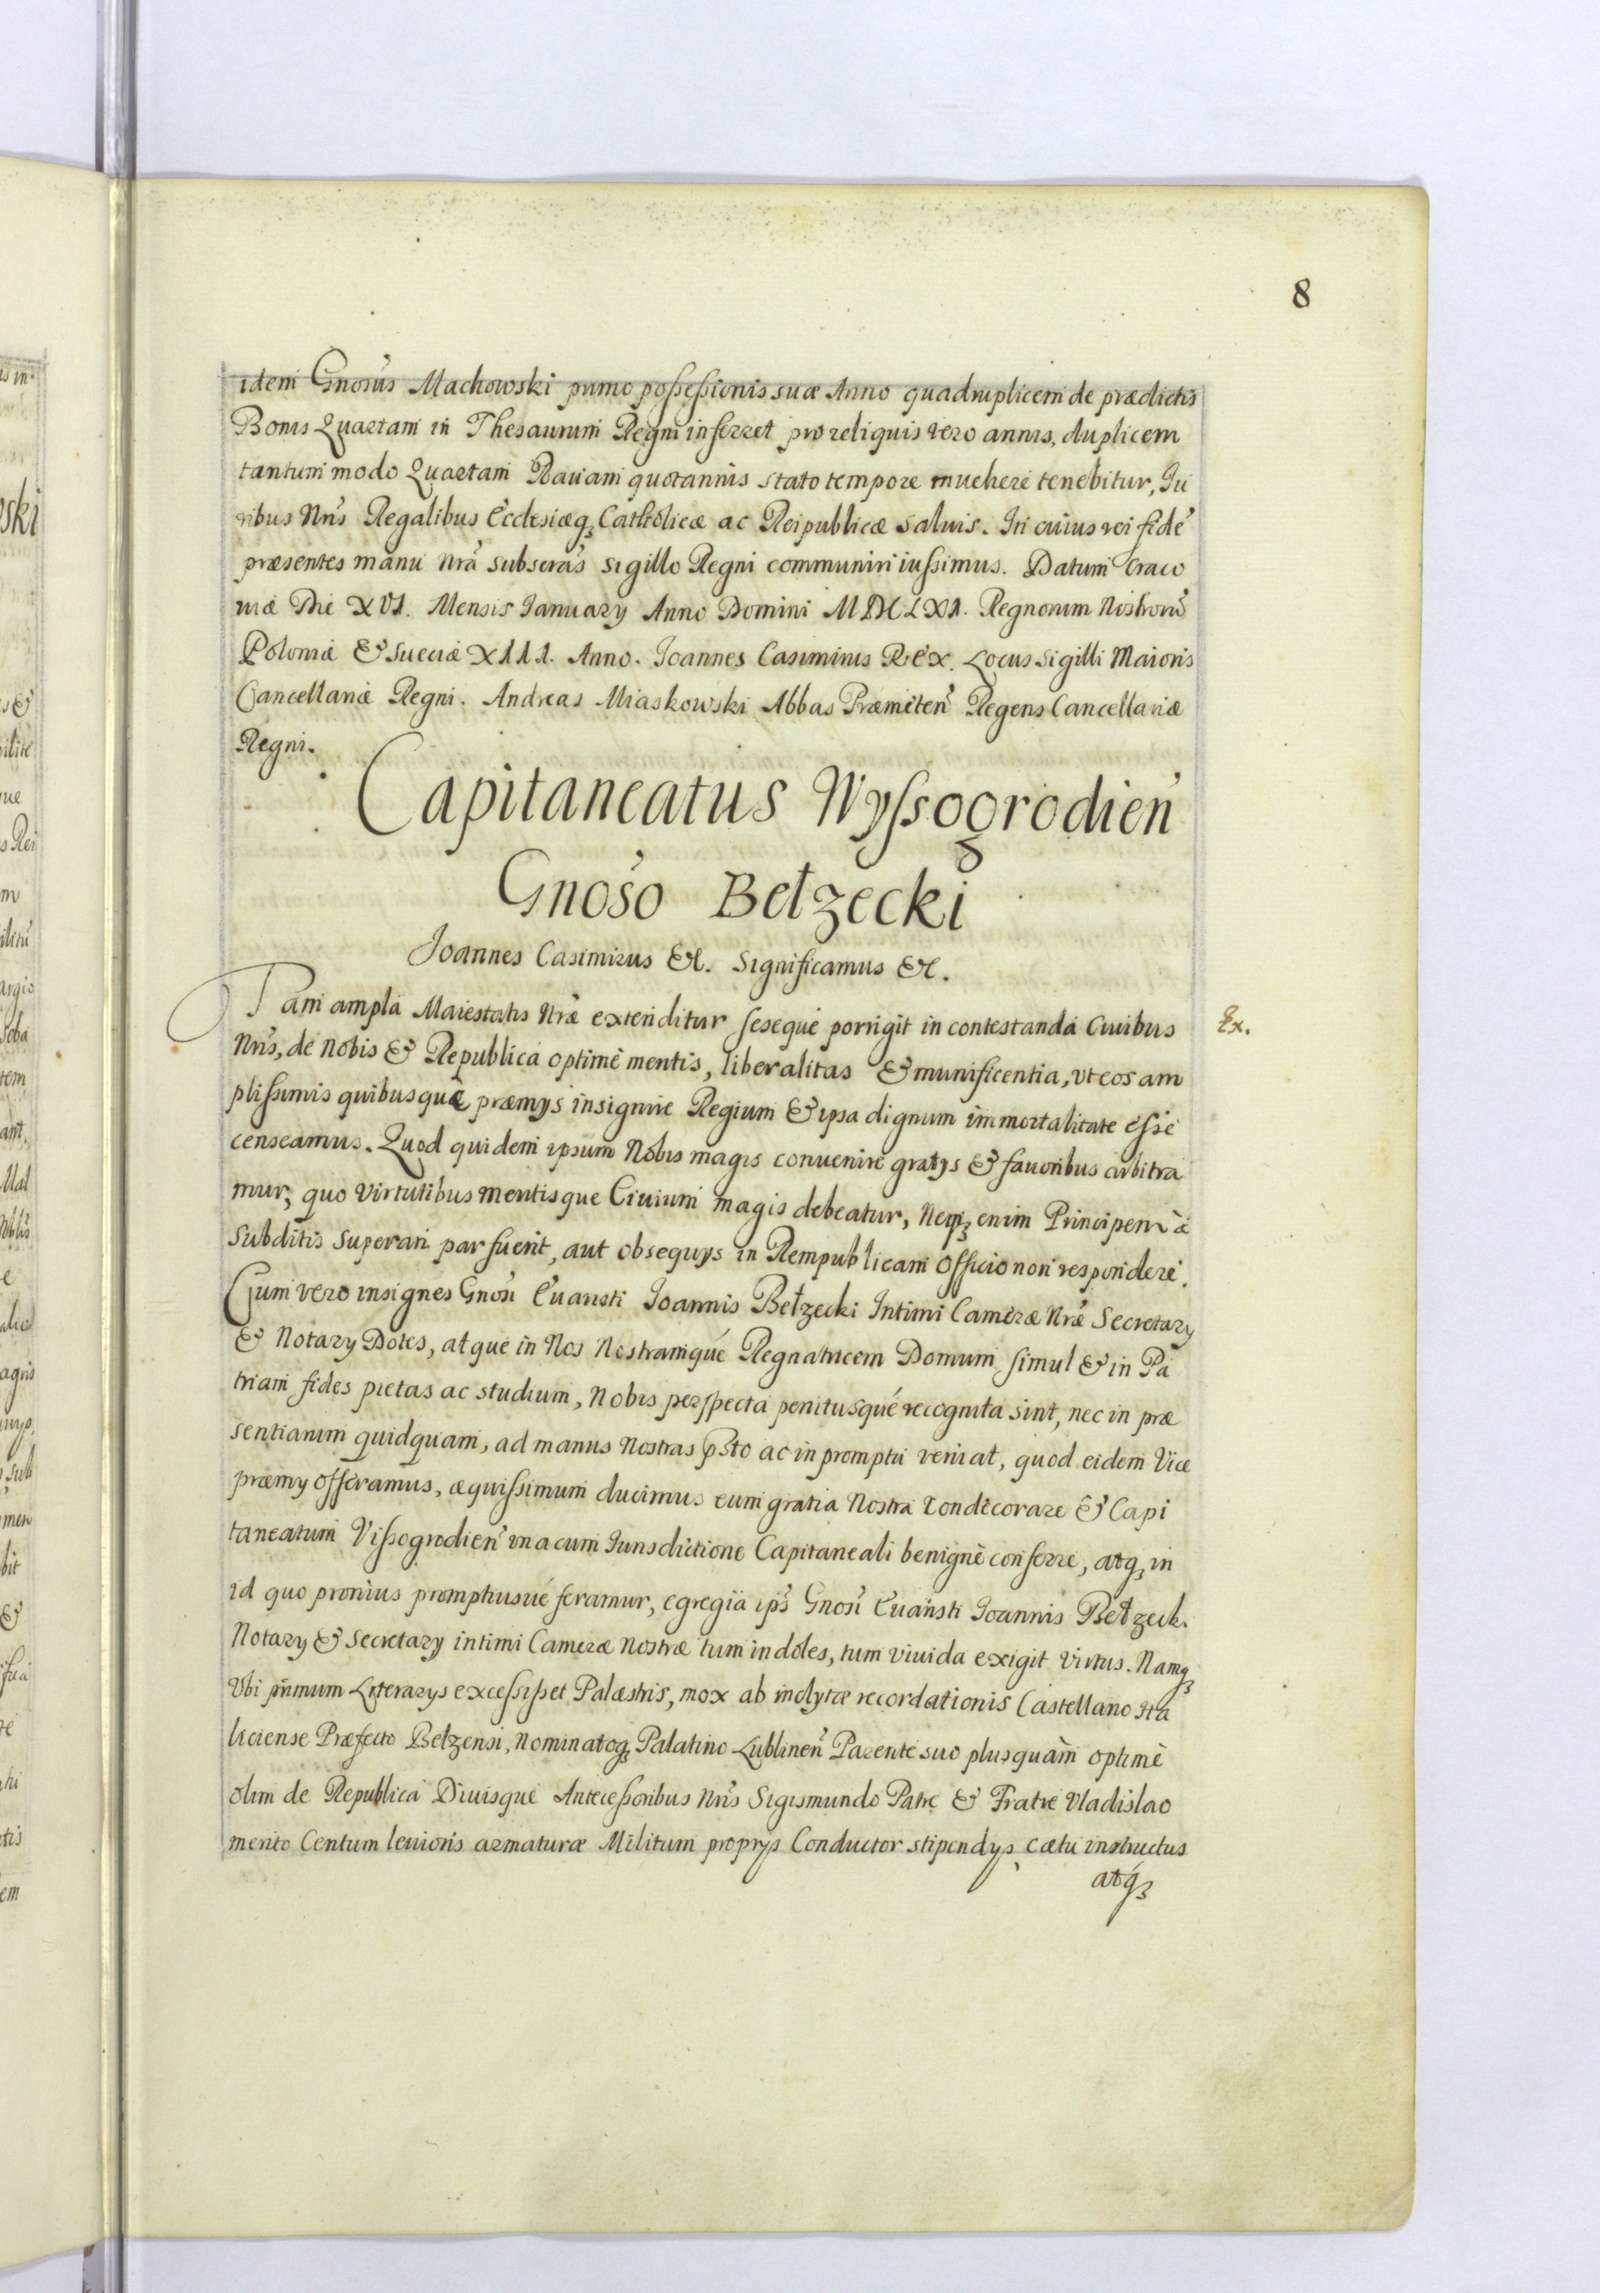 8
idem Gnosus Machowski primo possessionis suæ Anno quadruplicem de prædictis
Bonis Quartam in Thesaurum Regni inferret pro reliquis vero annis, duplicem
tantum modo Quartam Rauam quotannis stato tempore inuehere tenebitur, Iu
ribus Nris Regalibus Ecclesiæq3 Catholicæ ac Reipublicæ saluis. In cuius rei fidē
præsentes manu Nrā subscrās sigillo Regni communiri iussimus. Datum Craco
uiæ Die XVI. Mensis Ianuary Anno Domini MDCLXI. Regnorum Nostrorū
Poloniæ & Sueciæ XIII. Anno. Joannes Casimirus Rex. Locus Sigilli Maioris
Cancellariæ Regni. Andreas Miaskowski Abbas Præmeten̄ Regens Cancellariæ
Regni.
Capitaneatus Wyssogrodien̄
Gnoso Bełzecki
Joannes Casimirus &c. Significamus &c.
Ex.
Tam ampla Maiestatis Nræ extenditur seseque porrigit in contestanda Ciuibus
Nris, de Nobis & Republica optimè meritis, liberalitas & munificentia, vt eos am
plissimis quibusque præmys insignire Regium & ipsa dignum immortalitate esse
censeamus. Quod quidem ipsum Nobis magis conuenire gratys & fauoribus arbitra
mur, quo Virtutibus meritisque Ciuium magis debeatur, Neq3 enim Principem à
subditis superari par fuerit, aut obsequys in Rempublicam officio non respondere.
Cum vero insignes Gnosi Euaristi Joannis Bełzecki Intimi Cameræ Nræ Secretary
& Notary Dotes, atque in Nos Nostramqué Regnatricem Domum simul & in Pa
triam fides pietas ac studium, Nobis perspecta penitusqué recognita sint, nec in præ
sentiarum quidquam, ad manus Nostras psto ac in promptu veniat, quod eidem Vice
præmy offeramus, æquissimum ducimus eum gratia Nostra condecorare & Capi
taneatum Vissogrodien̄ vna cum Iurisdictione Capitaneali benignè conferre, atq3 in
id quo pronius promptiusué feramur, egregia ipś Gnosi Euaristi Joannis Bełzecki
Notary & Secretary intimi Cameræ Nostræ tum indoles, tum viuida exigit Virtus. Namq3
Vbi primum Literarys excessisset Palæstris, mox ab inclytæ recordationis Castellano Ha
liciense Præfecto Bełzensi, Nominatoq3 Palatino Lublinen̄ Parente suo plusquàm optimè
olim de Republica Diuisque Antecessoribus Nris Sigismundo Patre & Fratre Vladislao
merito Centum leuioris armaturæ Militum proprys Conductor stipendys, cætu instructus
atq3